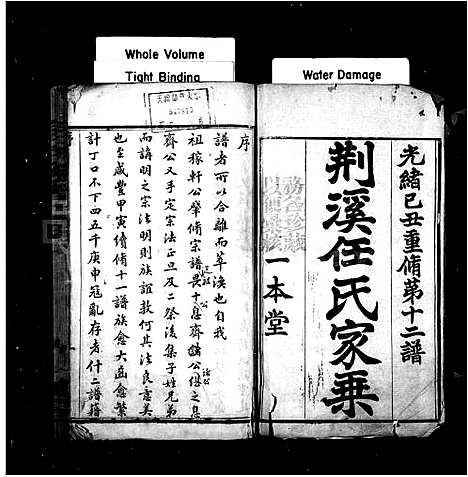 Whole Volume
Tight Binding
Water Damage
光緒己丑重脩苐十二譜
荆溪任氏家乗
一本堂
序
譜者所以合離而萃渙也自我
祖稼軒公肇脩宗譜
齊公又手定宗法正旦及二祭後集子姓兄弟
而講明之宗法明則族誼敦何其法良意美
也至咸豐甲寅續脩十一譜族愈大涵愈繁
計丁口不下四五千庚申冠亂存者什二譜